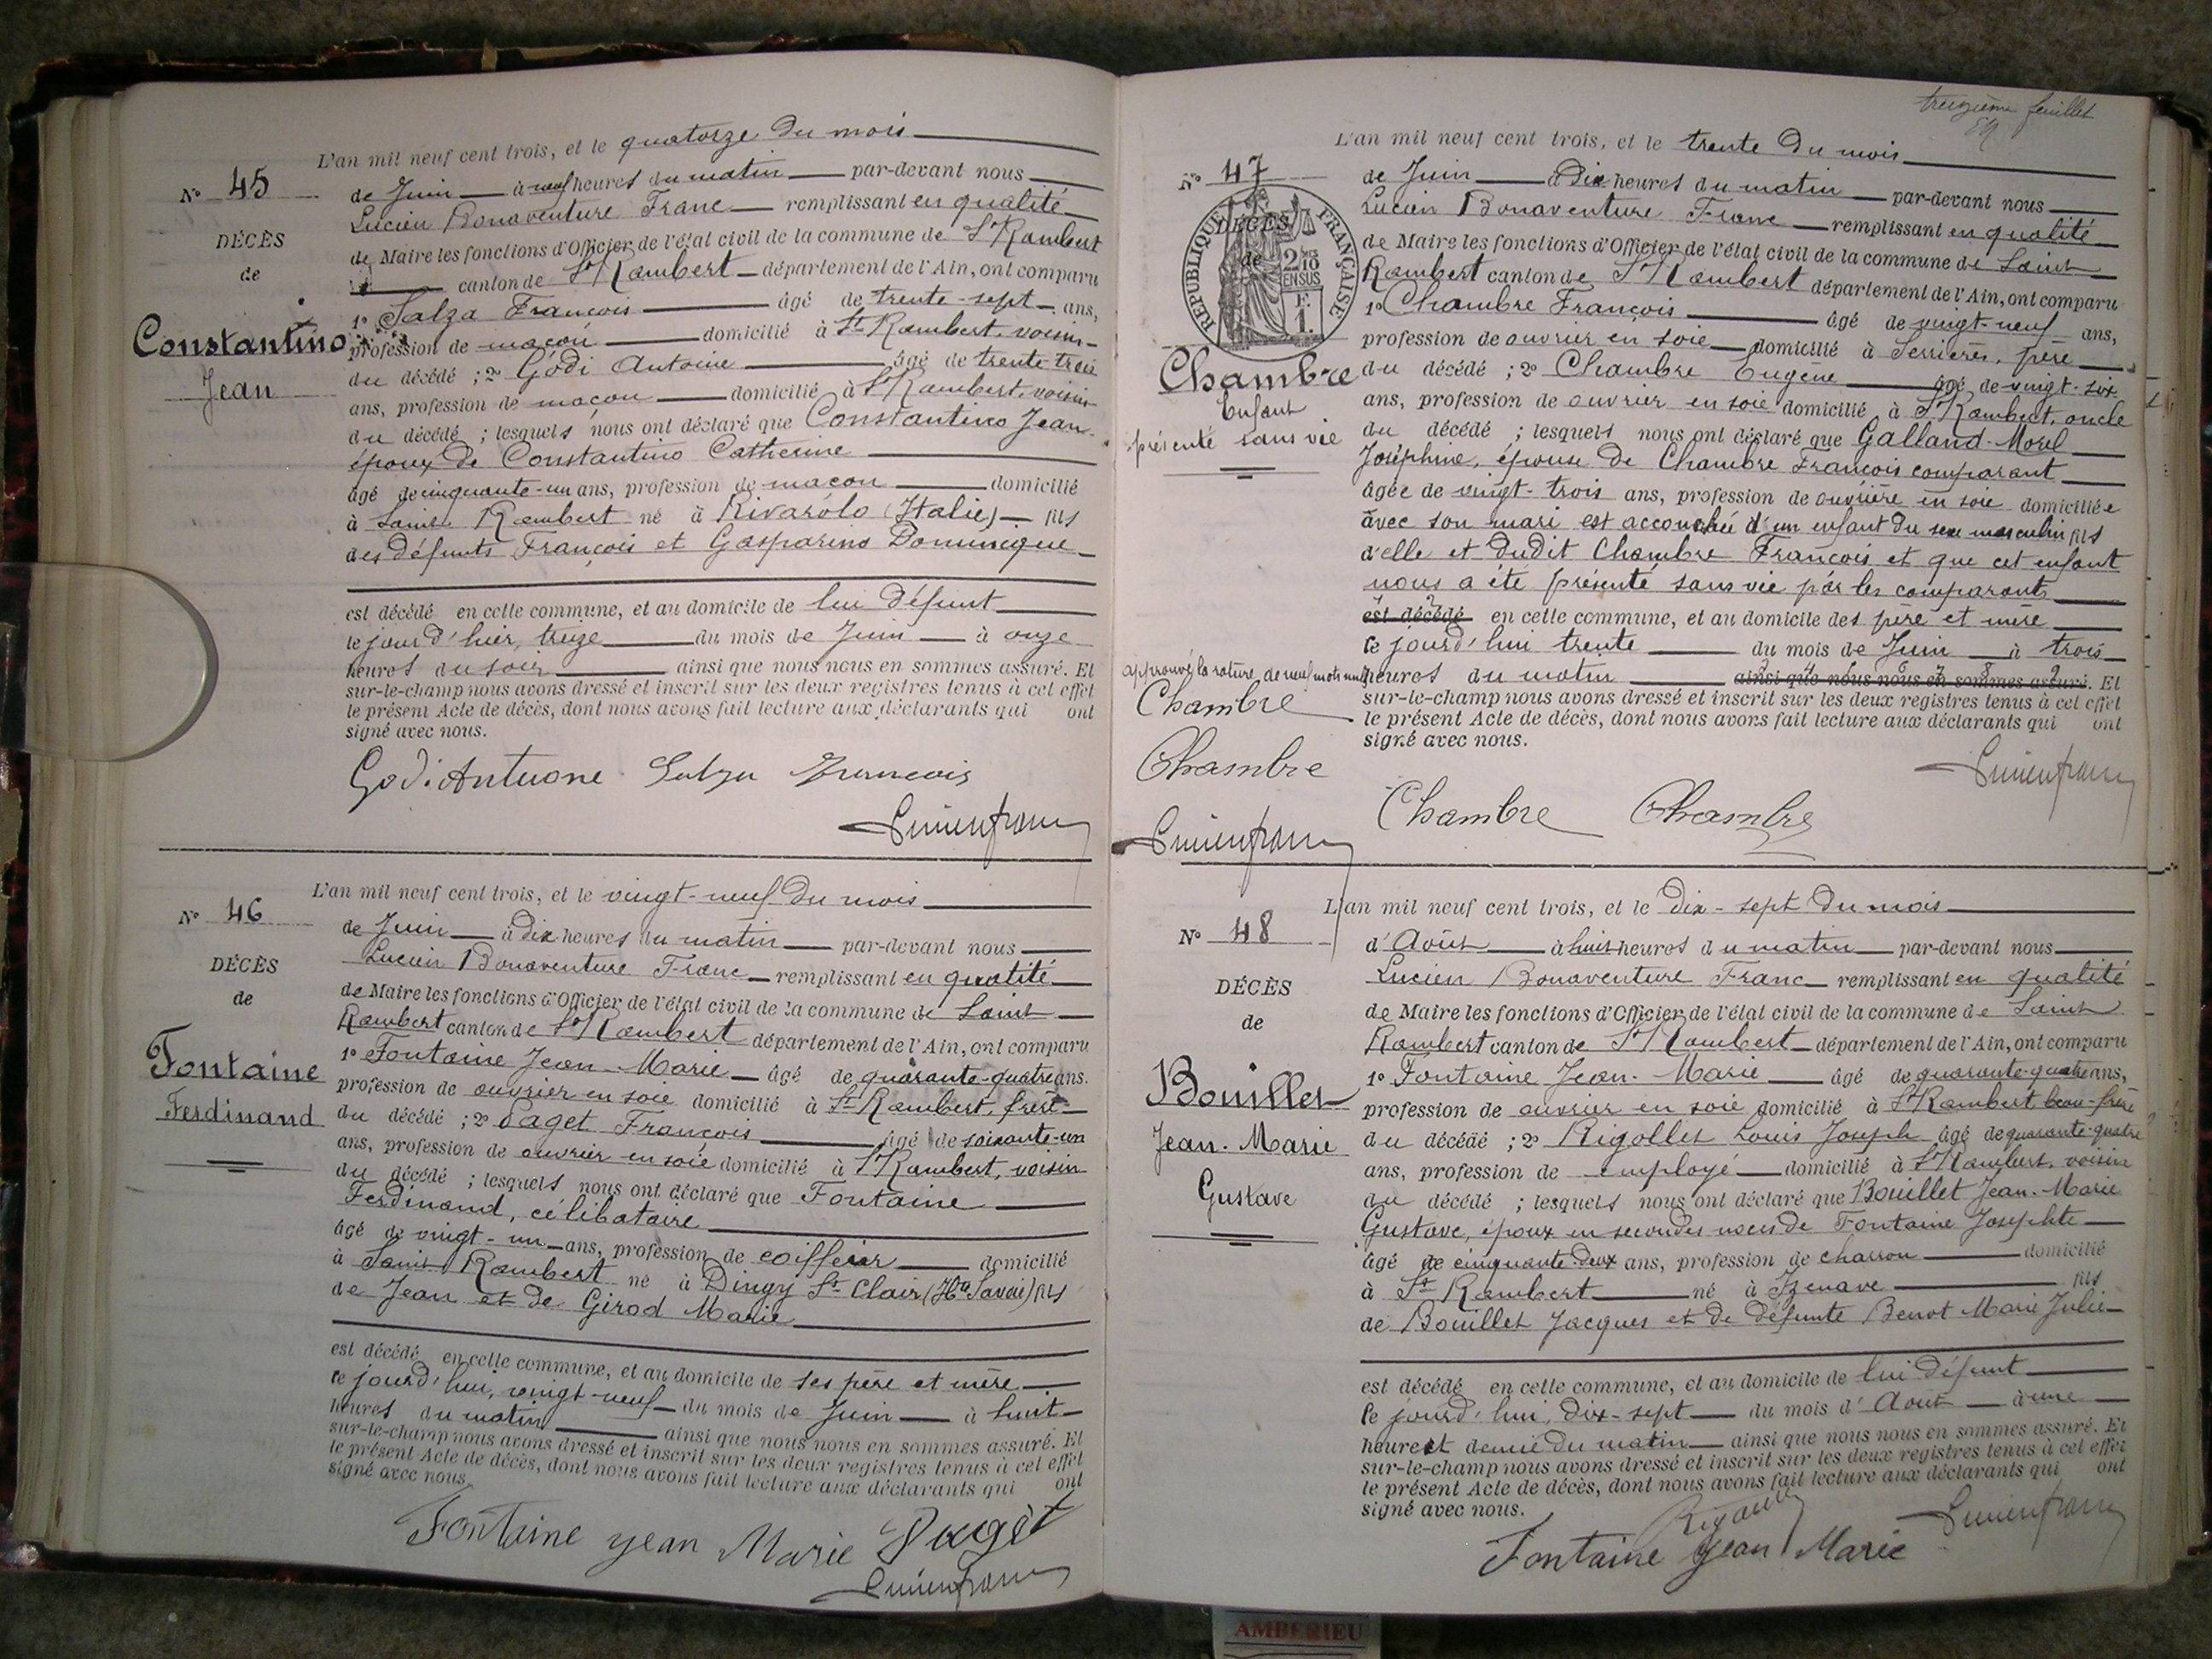 L'an mil neuf cent trois, et le quatorze du mois
N° 45
de Juin à neuf heures du matin par-devant nous
Lucien Bonaventure Franc remplissant en qualité
DÉCÈS
de Maire les fonctions d'Officier de l'état civil de la commune de St Rambert
de
canton de St Rambert département de l'Ain, ont comparu
1° Salza François âgé de trente-sept ans,
Constantino
profession de maçon domicilié à St Rambert, voisin
Jean
du décédé ; 2° Gödi Antoine âgé de trente trois
ans, profession de maçon domicilié à St Rambert, voisin
du décédé ; lesquels nous ont déclaré que Constantino Jean
époux de Constantino Catherine
âgé de cinquante-un ans, profession de maçon domicilié
à Saint Rambert né à Rivarolo (Italie) fils
des défunts François et Gasparino Dominique
est décédé en cette commune, et au domicile de lui défunt
le jourd'hier, treize du mois de Juin à onze
heures du soir ainsi que nous nous en sommes assuré. Et
sur-le-champ nous avons dressé et inscrit sur les deux registres tenus à cet effet
le présent Acte de décès, dont nous avons fait lecture aux déclarants qui ont
signé avec nous.
Godi Antuone Salza Francois
Lucien franc
L'an mil neuf cent trois, et le vingt-neuf du mois
N° 46
de Juin à dix heures du matin par-devant nous
Lucien Bonaventure Franc remplissant en qualité
DÉCÈS
de Maire les fonctions d'Officier de l'état civil de la commune de Saint
de
Rambert canton de St Rambert département de l'Ain, ont comparu
1° Fontaine Jean-Marie âgé de quarante-quatre ans.
Fontaine
profession de ouvrier en soie domicilié à St Rambert, frère
Ferdinand
du décédé ; 2° Paget François âgé de soixante-un
ans, profession de ouvrier en soie domicilié à St Rambert, voisin
du décédé ; lesquels nous ont déclaré que Fontaine
Ferdinand, célibataire
âgé de vingt-un ans, profession de coiffeur domicilié
à Saint Rambert né à Dingy St Clair (Hte Savoie) fils
de Jean et de Girod Marie
est décédé en cette commune, et au domicile de ses père et mère
le jourd'hui, vingt-neuf du mois de Juin à huit
heures du matin ainsi que nous nous en sommes assuré. Et
sur-le-champ nous avons dressé et inscrit sur les deux registres tenus à cet effet
le présent Acte de décès, dont nous avons fait lecture aux déclarants qui ont
signé avec nous.
Fontaine jean Marie Paget
Lucien franc
treizième feuillet
L'an mil neuf cent trois, et le trente du mois
N° 47
de Juin à Dix heures du matin par-devant nous
Lucien Bonaventure Franc remplissant en qualité
DÉCÈS
de Maire les fonctions d'Officier de l'état civil de la commune de Saint
de
REPUBLIQUE FRANÇAISE
2/10 EN SUS
F. 1.
Rambert canton de St Rambert département de l'Ain, ont comparu
1° Chambre François âgé de vingt-neuf ans,
profession de ouvrier en soie domicilié à Serrières, père
Chambre
du décédé ; 2° Chambre Eugène âgé de vingt-six
Enfant
ans, profession de ouvrier en soie domicilié à St Rambert, oncle
présenté sans vie
du décédé ; lesquels nous ont déclaré que Galland-Morel
Joséphine, épouse de Chambre François comparant
âgée de vingt-trois ans, profession de ouvrière en soie domiciliée
avec son mari est accouchée d'un enfant du sexe masculin fils
d'elle et dudit Chambre François et que cet enfant
nous a été présenté sans vie par les comparants
est décédé en cette commune, et au domicile des père et mère
le jourd'hui trente du mois de Juin à trois
approuvé la rature de neuf mots nuls
heures du matin ainsi que nous nous en sommes assuré. Et
sur-le-champ nous avons dressé et inscrit sur les deux registres tenus à cet effet
Chambre
le présent Acte de décès, dont nous avons fait lecture aux déclarants qui ont
signé avec nous.
Chambre
Lucien franc
Chambre Chambre
Lucien franc
L'an mil neuf cent trois, et le Dix-sept du mois
N° 48
d'Août à huit heures du matin par-devant nous
Lucien Bonaventure Franc remplissant en qualité
DÉCÈS
de Maire les fonctions d'Officier de l'état civil de la commune de Saint
de
Rambert canton de St Rambert département de l'Ain, ont comparu
1° Fontaine Jean-Marie âgé de quarante-quatre ans,
Bouillet
profession de ouvrier en soie domicilié à St Rambert, beau-frère
Jean-Marie
du décédé ; 2° Rigollet Louis Joseph âgé de quarante-quatre
ans, profession de employé domicilié à St Rambert, voisin
Gustave
du décédé ; lesquels nous ont déclaré que Bouillet Jean-Marie
Gustave, époux en secondes noces de Fontaine Josephte
âgé de cinquante-deux ans, profession de charron domicilié
à St Rambert né à Izenave fils
de Bouillet Jacques et de défunte Benot Marie Julie
est décédé en cette commune, et au domicile de lui défunt
le jourd'hui, dix-sept du mois d'Août à une
heure et demie du matin ainsi que nous nous en sommes assuré. Et
sur-le-champ nous avons dressé et inscrit sur les deux registres tenus à cet effet
le présent Acte de décès, dont nous avons fait lecture aux déclarants qui ont
signé avec nous.
Lucien franc
Fontaine jean Marie
AMBERIEU